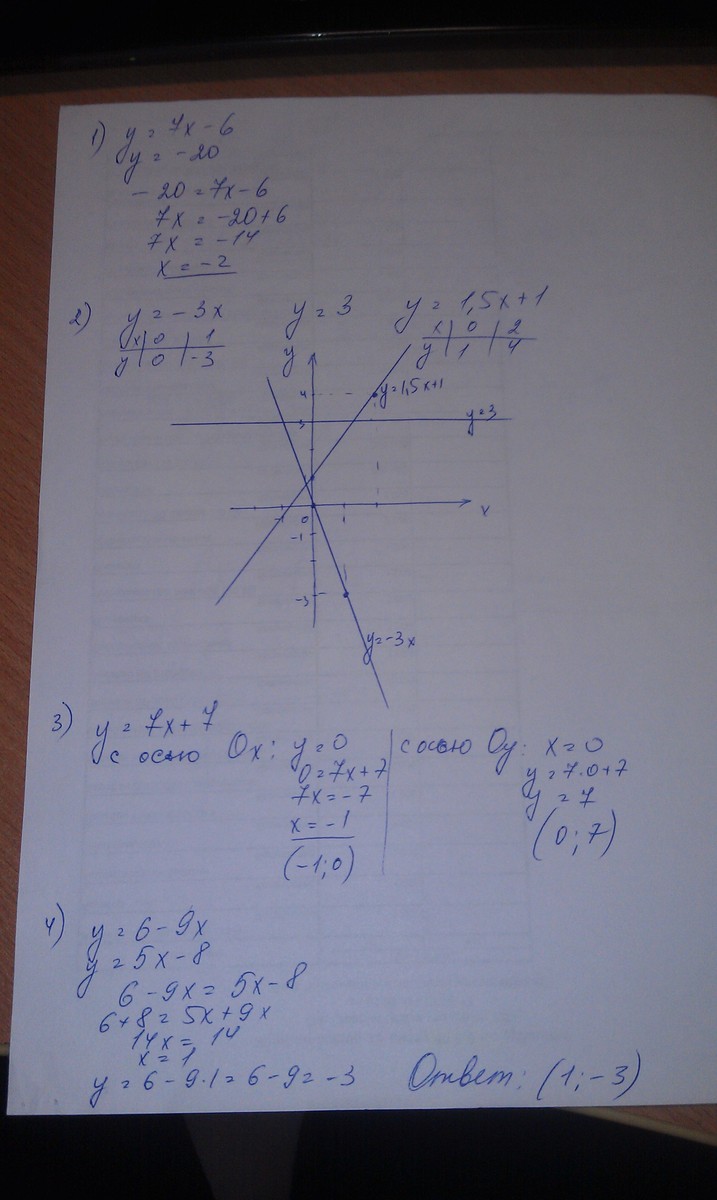 1) y = 7x - 6
y = -20
-20 = 7x - 6
7x = -20 + 6
7x = -14
x = -2
2) y = -3x y = 3 y = 1,5x + 1
x | 0 | 1
y | 0 | -3
x | 0 | 2
y | 1 | 4
y
4
y=1,5x+1
3
y=3
-1
0
1
x
-1
-3
y=-3x
3) y = 7x + 7
с осью Ox: y = 0
0 = 7x + 7
7x = -7
x = -1
(-1; 0)
с осью Oy: x = 0
y = 7·0+7
y = 7
(0; 7)
4) y = 6 - 9x
y = 5x - 8
6 - 9x = 5x - 8
6 + 8 = 5x + 9x
14x = 14
x = 1
y = 6 - 9·1 = 6 - 9 = -3 Ответ: (1; -3)